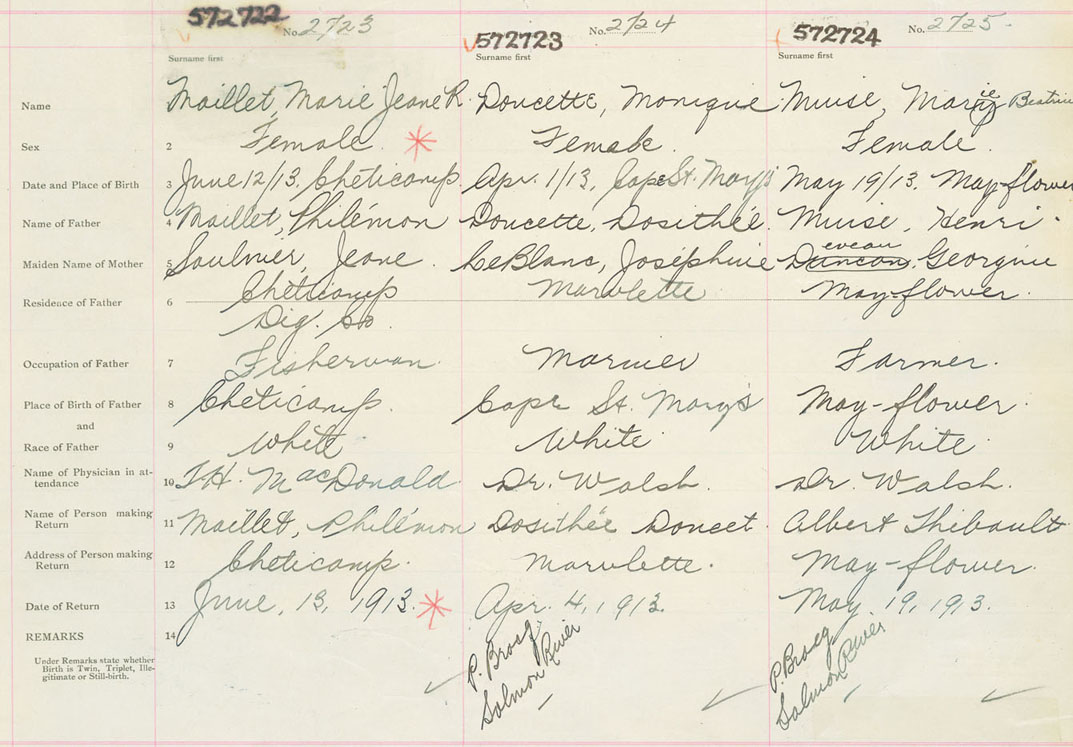 572722 No. 2723 572723 No. 2724 572724 No. 2725
Surname first Surname first Surname first
Name Maillet, Marie Jeane R. Doucette, Monique Muise, Marie Beatrice
Sex 2 Female Female Female
Date and Place of Birth 3 June 12/13, Chéticamp Apr. 1/13, Cape St. Mary's May 19/13. May-flower
Name of Father 4 Maillet, Philemon Doucette, Dosithée Muise, Henri
eveau
Maiden Name of Mother 5 Saulnier, Jeane LeBlanc, Joséphine Duncan, Georgine
Residence of Father 6 Chéticamp Marvlette May-flower
Dig. Co
Occupation of Father 7 Fisherman Marnier Farmer
Place of Birth of Father 8 Chéticamp Cape St. Mary's May-flower
and
Race of Father 9 White White White
Name of Physician in at-
tendance 10 MacDonald Dr. Walsh. Dr. Walsh.
Name of Person making
Return 11 Maillet, Philémon Dosithée Doucet Albert Thibault
Address of Person making
Return 12 Chéticamp. Marvlette. May-flower.
Date of Return 13 June, 13, 1913. Apr. 4, 1913. May, 19, 1913.
REMARKS 14
Under Remarks state whether
Birth is Twin, Triplet, Ille-
gitimate or Still-birth.
P. Brosg
Salmon River
P. Brosg
Salmon River